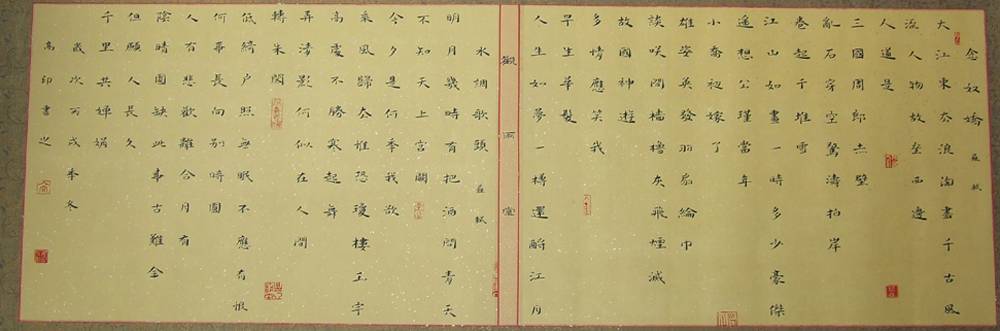 念奴嬌 蘇軾
大江東去浪淘盡千古風
流人物故壘西邊
人道是
三國周郎赤壁
亂石穿空驚濤拍岸
卷起千堆雪
江山如畫一時多少豪傑
遙想公瑾當年
小喬初嫁了
雄姿英發羽扇綸巾
談笑間檣櫓灰飛煙滅
故國神遊
多情應笑我
早生華髮
人生如夢一樽還酹江月
觀雨堂
水調歌頭 蘇軾
明月幾時有把酒問青天
不知天上宮闕
今夕是何秊我欲
乘風歸去惟恐瓊樓玉宇
高處不勝寒起舞
弄清影何似在人間
轉朱閣
低綺戶照無眠不應有恨
何事長向別時圓
人有悲歡離合月有
陰晴圓缺此事古難全
但願人長久
千里共嬋娟
歲次丙戌季冬
高印書之